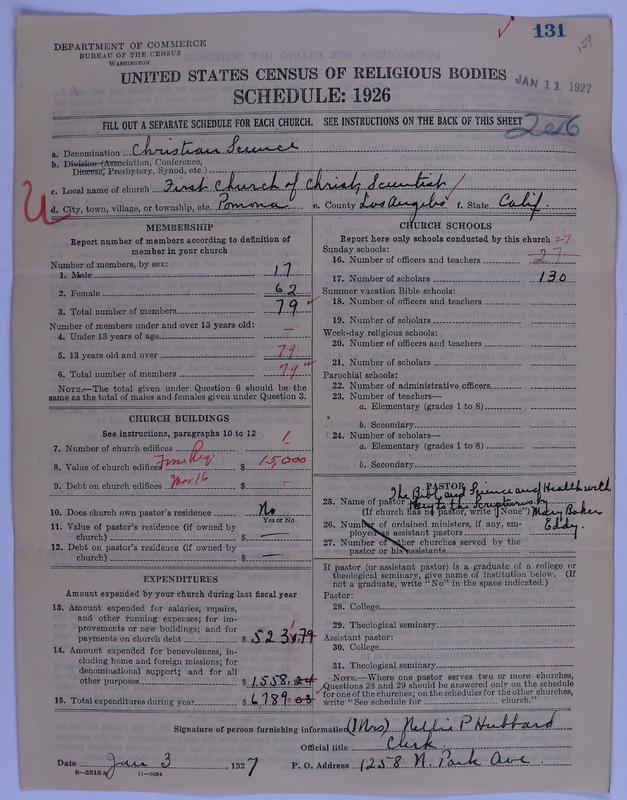 131
154
DEPARTMENT OF COMMERCE
BUREAU OF THE CENSUS
WASHINGTON
UNITED STATES CENSUS OF RELIGIOUS BODIES
JAN 11 1927
SCHEDULE: 1926
FILL OUT A SEPARATE SCHEDULE FOR EACH CHURCH. SEE INSTRUCTIONS ON THE BACK OF THIS SHEET
a. Denomination Christian Science
b. Division (Association, Conference, Diocese, Presbytery, Synod, etc.)
c. Local name of church First Church of Christ, Scientist
d. City, town, village, or township, etc. Pomona e. County Los Angeles f. State Calif.
MEMBERSHIP
Report number of members according to definition of member in your church
Number of members, by sex:
1. Male 17
2. Female 62
3. Total number of members 79
Number of members under and over 13 years old:
4. Under 13 years of age —
5. 13 years old and over 79
6. Total number of members 79
NOTE.—The total given under Question 6 should be the same as the total of males and females given under Question 3.
CHURCH BUILDINGS
See instructions, paragraphs 10 to 12
7. Number of church edifices 1
8. Value of church edifices $ 15,000
9. Debt on church edifices $ -
10. Does church own pastor's residence No
Yes or No
11. Value of pastor's residence (if owned by church) $ —
12. Debt on pastor's residence (if owned by church) $ —
EXPENDITURES
Amount expended by your church during last fiscal year
13. Amount expended for salaries, repairs, and other running expenses; for improvements or new buildings; and for payments on church debt $ 5231.79
14. Amount expended for benevolences, including home and foreign missions; for denominational support; and for all other purposes $ 1558.24
15. Total expenditures during year $ 6789.03
CHURCH SCHOOLS
Report here only schools conducted by this church 27
Sunday schools:
16. Number of officers and teachers 27
17. Number of scholars 130
Summer vacation Bible schools:
18. Number of officers and teachers
19. Number of scholars
Week-day religious schools:
20. Number of officers and teachers
21. Number of scholars
Parochial schools:
22. Number of administrative officers
23. Number of teachers—
a. Elementary (grades 1 to 8)
b. Secondary
24. Number of scholars—
a. Elementary (grades 1 to 8)
b. Secondary
PASTOR
25. Name of pastor The Bible and Science and Health with Key to the Scriptures by Mary Baker Eddy.
(If church has no pastor, write "None")
26. Number of ordained ministers, if any, employed as assistant pastors
27. Number of other churches served by the pastor or his assistants
If pastor (or assistant pastor) is a graduate of a college or theological seminary, give name of institution below. (If not a graduate, write "No" in the space indicated.)
Pastor:
28. College
29. Theological seminary
Assistant pastor:
30. College
31. Theological seminary
NOTE.—Where one pastor serves two or more churches, Questions 28 and 29 should be answered only on the schedule for one of the churches; on the schedules for the other churches, write "See schedule for church."
Signature of person furnishing information (Mrs) Nellie P Hubbard
Official title Clerk
Date Jan 3, 1927 P. O. Address 1258 N. Park Ave
8—5518 a 11—9054